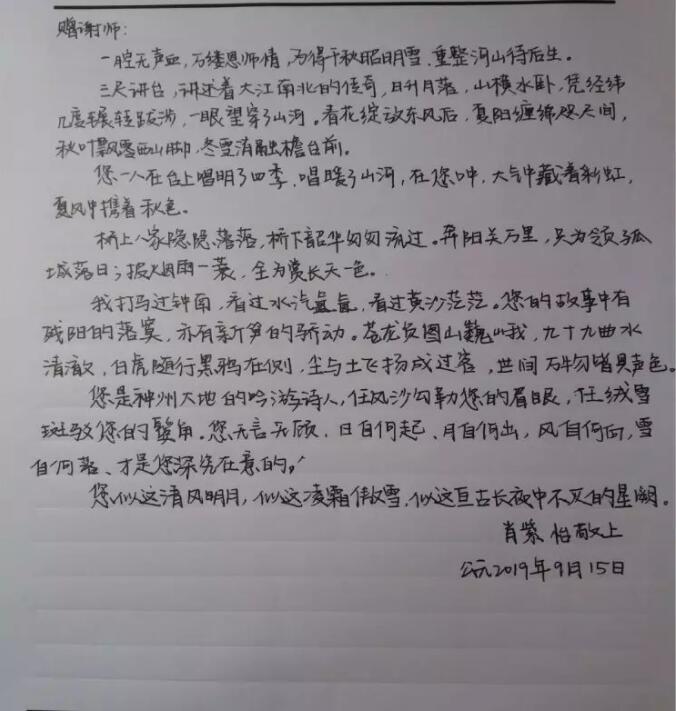 赠谢师:
一腔无声血,万缕恩师情,为得千秋昭明雪,重整河山待后生。
三尺讲台,讲述着大江南北的传奇,日升月落,山横水卧,凭经纬
几度辗转跋涉,一眼望穿了山河。看花绽放东风后,夏阳缠绵咫尺间,
秋叶飘零西山脚,冬雪消融檐台前。
您一人在台上唱明了四季,唱暖了山河,在您口中,大气中藏着彩虹,
夏风中携着秋色。
桥上人家隐隐落落,桥下韶华匆匆流过。奔阳关万里,只为领孤
城落日;披烟雨一蓑,全为赏长天一色。
我打马过钟南,看过水汽氤氲,看过黄沙茫茫。您的故事中有
残阳的落寞,亦有新笋的骄动。苍龙负图山巍峨,九十九曲水
清澈,白虎随行黑鸦在侧,尘与土飞扬成过客,世间万物皆具声色。
您是神州大地的吟游诗人,任风沙勾勒您的眉眼,任绒雪
斑驳您的鬓角。您无言无顾,日自何起、月自何出,风自何向,雪
自何落、才是您深究在意的。
您似这清风明月,似这凌霜傲雪,似这亘古长夜中不灭的星阙。
肖紫怡敬上
公元2019年9月15日